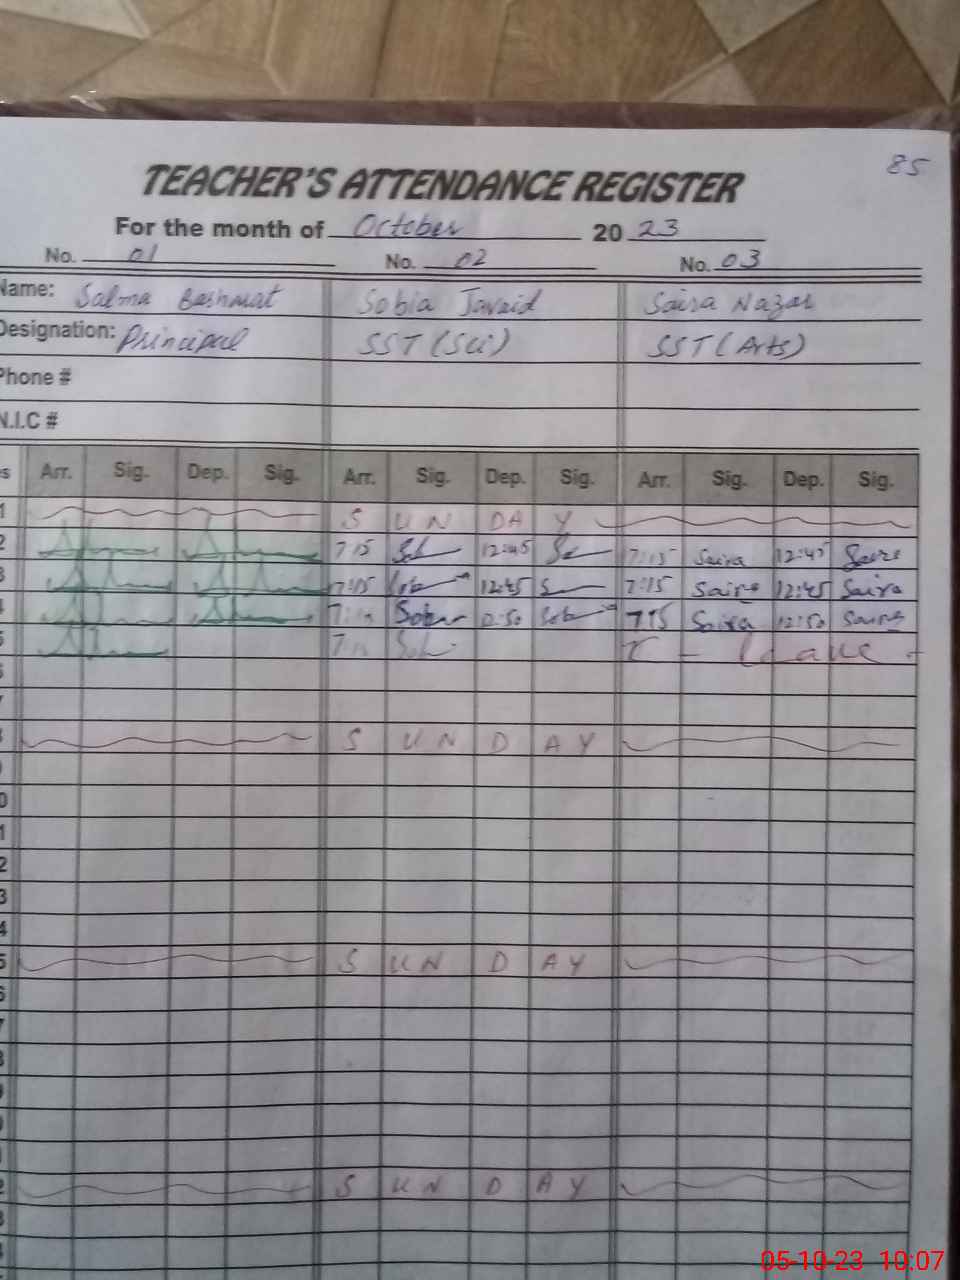 85
TEACHER'S ATTENDANCE REGISTER
For the month of October 2023
No. 01 No. 02 No. 03
Name: Salma Basharat Sobia Javaid Saira Nazar
Designation: Principal SST (Sci) SST (Arts)
Phone #
N.I.C #
s Arr. Sig. Dep. Sig. Arr. Sig. Dep. Sig. Arr. Sig. Dep. Sig.
1 SUNDAY
2 7:15 12:45 7:15 Saira 12:45 Saira
3 7:15 12:45 7:15 Saira 12:45 Saira
4 7:15 12:50 7:15 Saira 12:50 Saira
5 7:15 Leave
6
7
8 SUNDAY
9
0
1
2
3
4
5 SUNDAY
6
7
8
9
0
1
2 SUNDAY
3
4
05-10-23 10:07